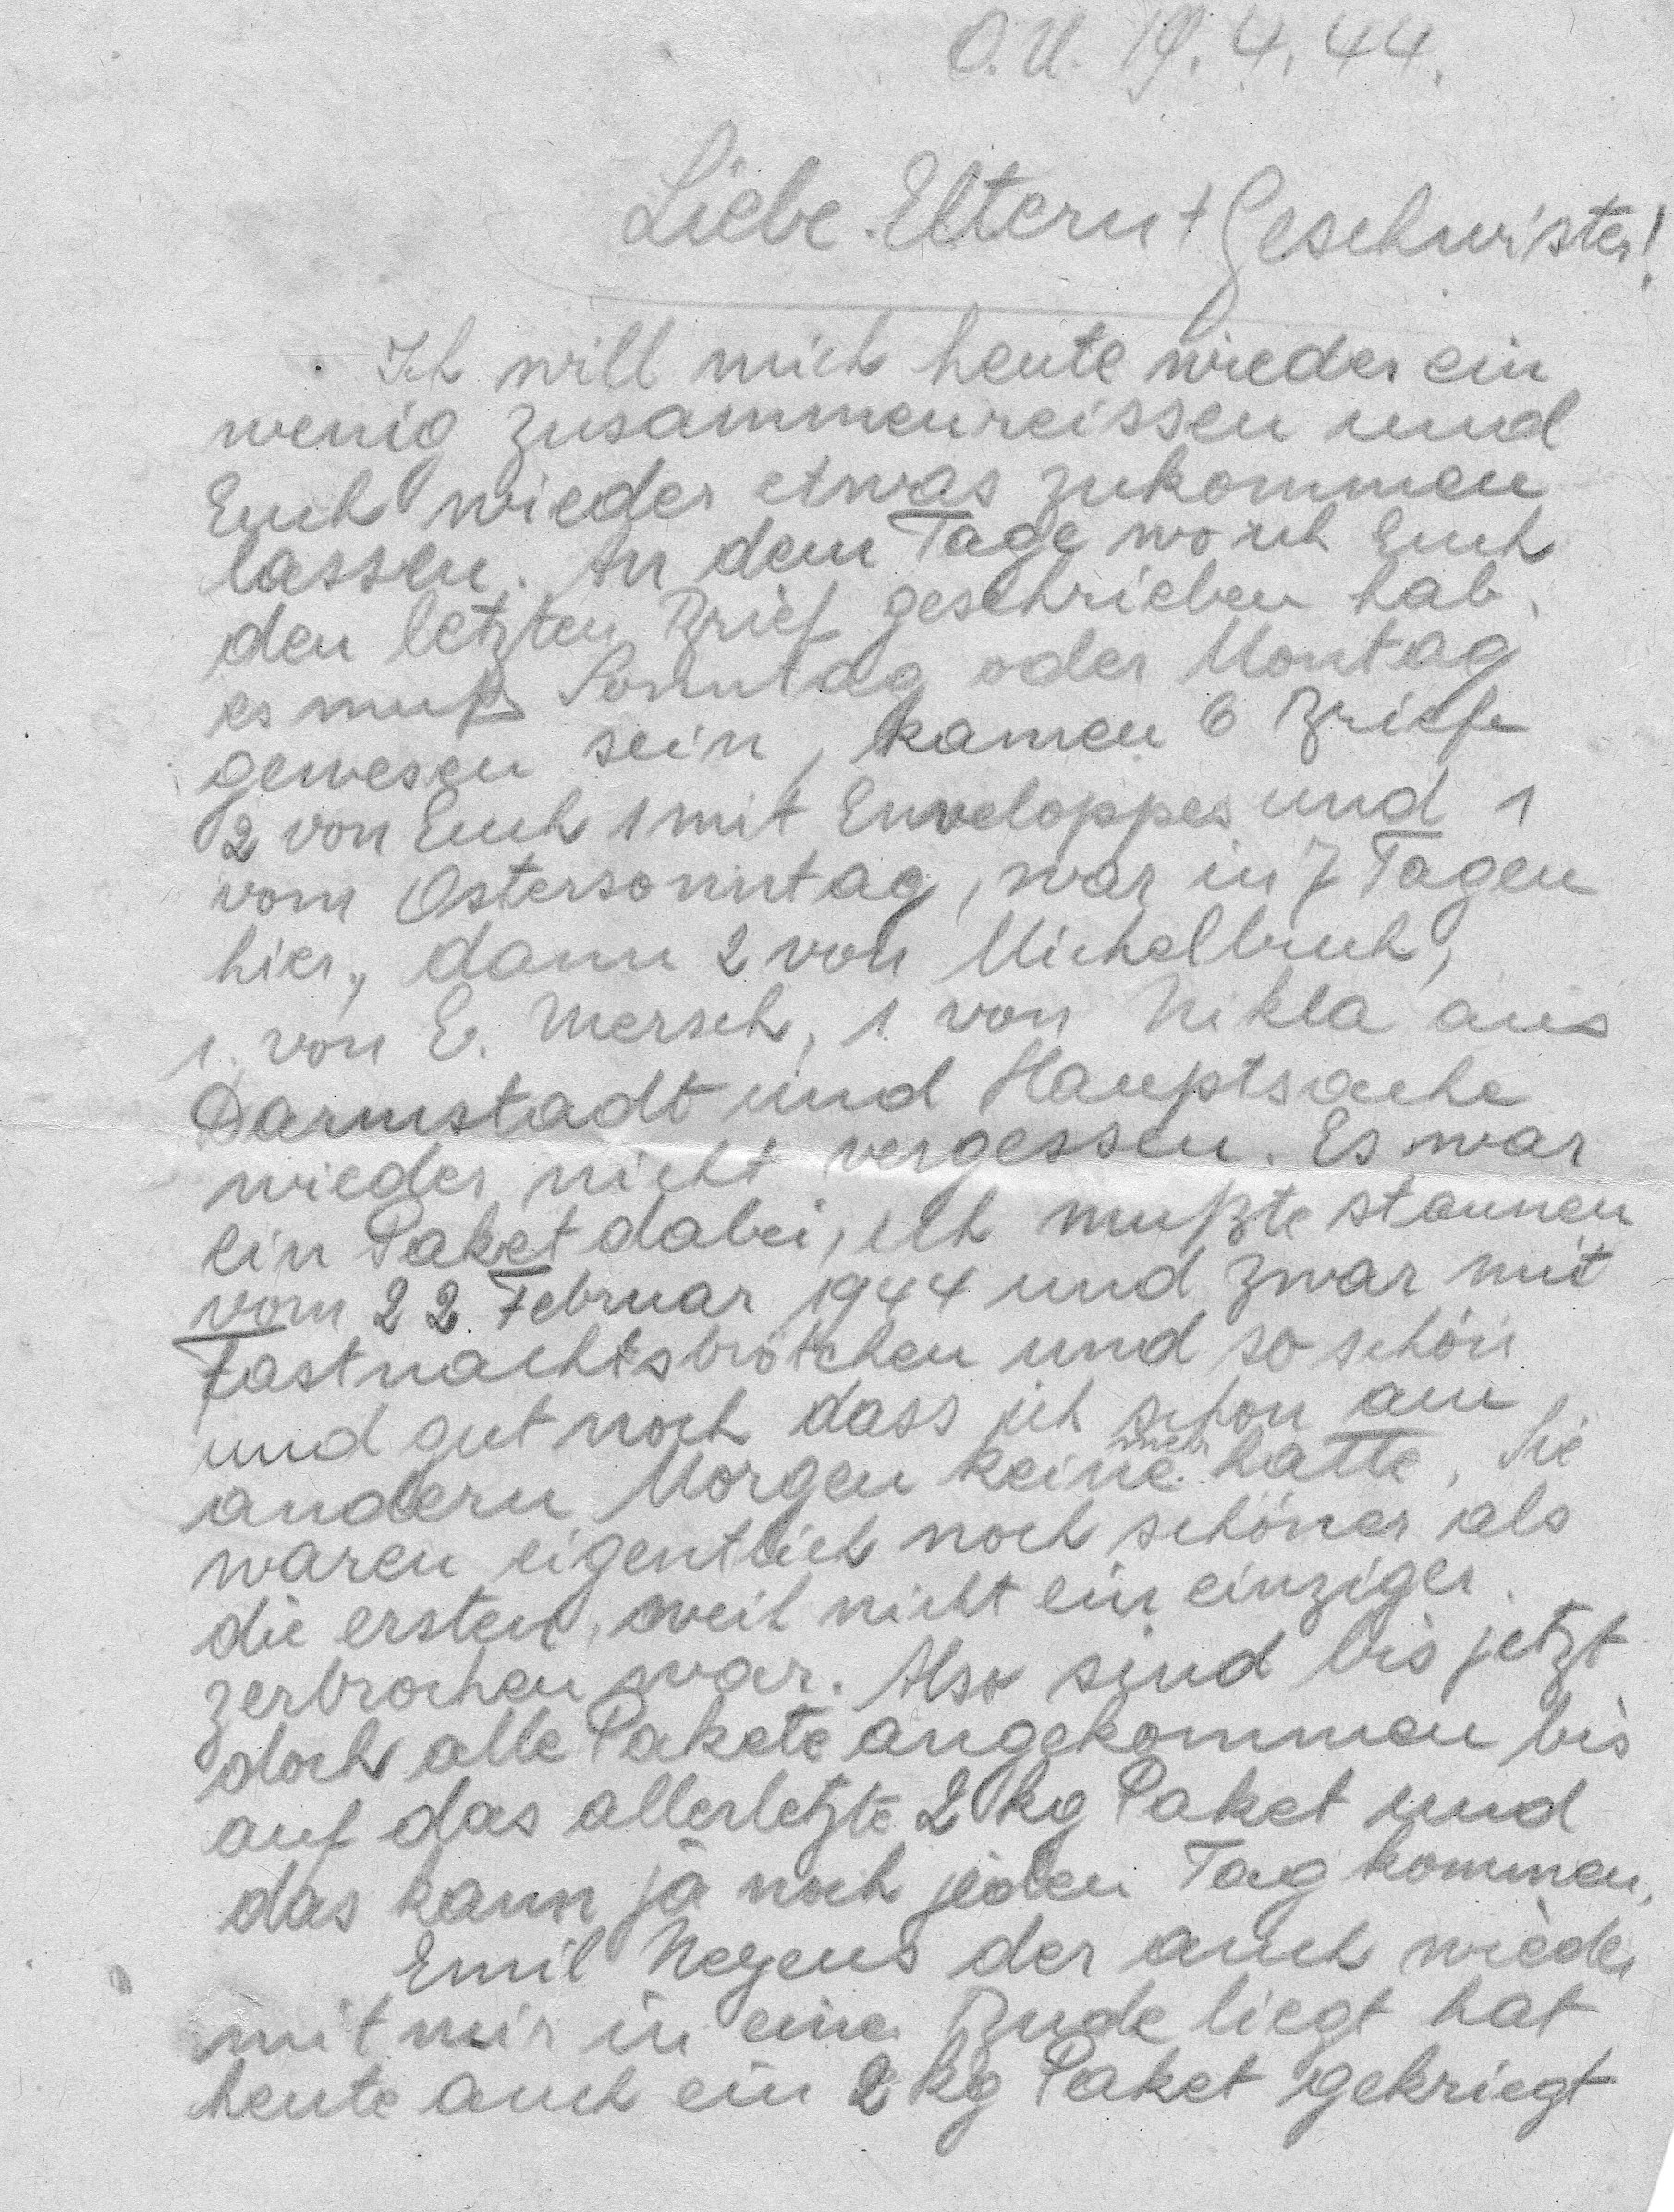 O.U. 19.4.44.
Liebe Eltern + Geschwister!
Ich will mich heute wieder ein
wenig zusammenreissen und
Euch wieder etwas zukommen
lassen. An dem Tage wo ich Euch
den letzten Brief geschrieben hab,
es muß Sonntag oder Montag
gewesen sein, kamen 6 Briefe
2 von Euch 1 mit Enveloppes und 1
vom Ostersonntag, war in 7 Tagen
hier, dann 2 von Michelbuch,
1 von E. Mersch, 1 von Nikla aus
Darmstadt und Hauptsache
wieder nicht vergessen. Es war
ein Paket dabei, ich mußte staunen
vom 22. Februar 1944 und zwar mit
Fastnachtsbrötchen und so schön
und gut noch dass ich schon am
andern Morgen keine mehr hatte. Sie
waren eigentlich noch schöner als
die ersten, weil nicht ein einziger
zerbrochen war. Also sind bis jetzt
doch alle Pakete angekommen bis
auf das allerletzte 2 kg Paket und
das kann ja noch jeden Tag kommen.
Emil Neyens der auch wieder
mit mir in einer Bude liegt hat
heute auch ein 2 kg Paket gekriegt